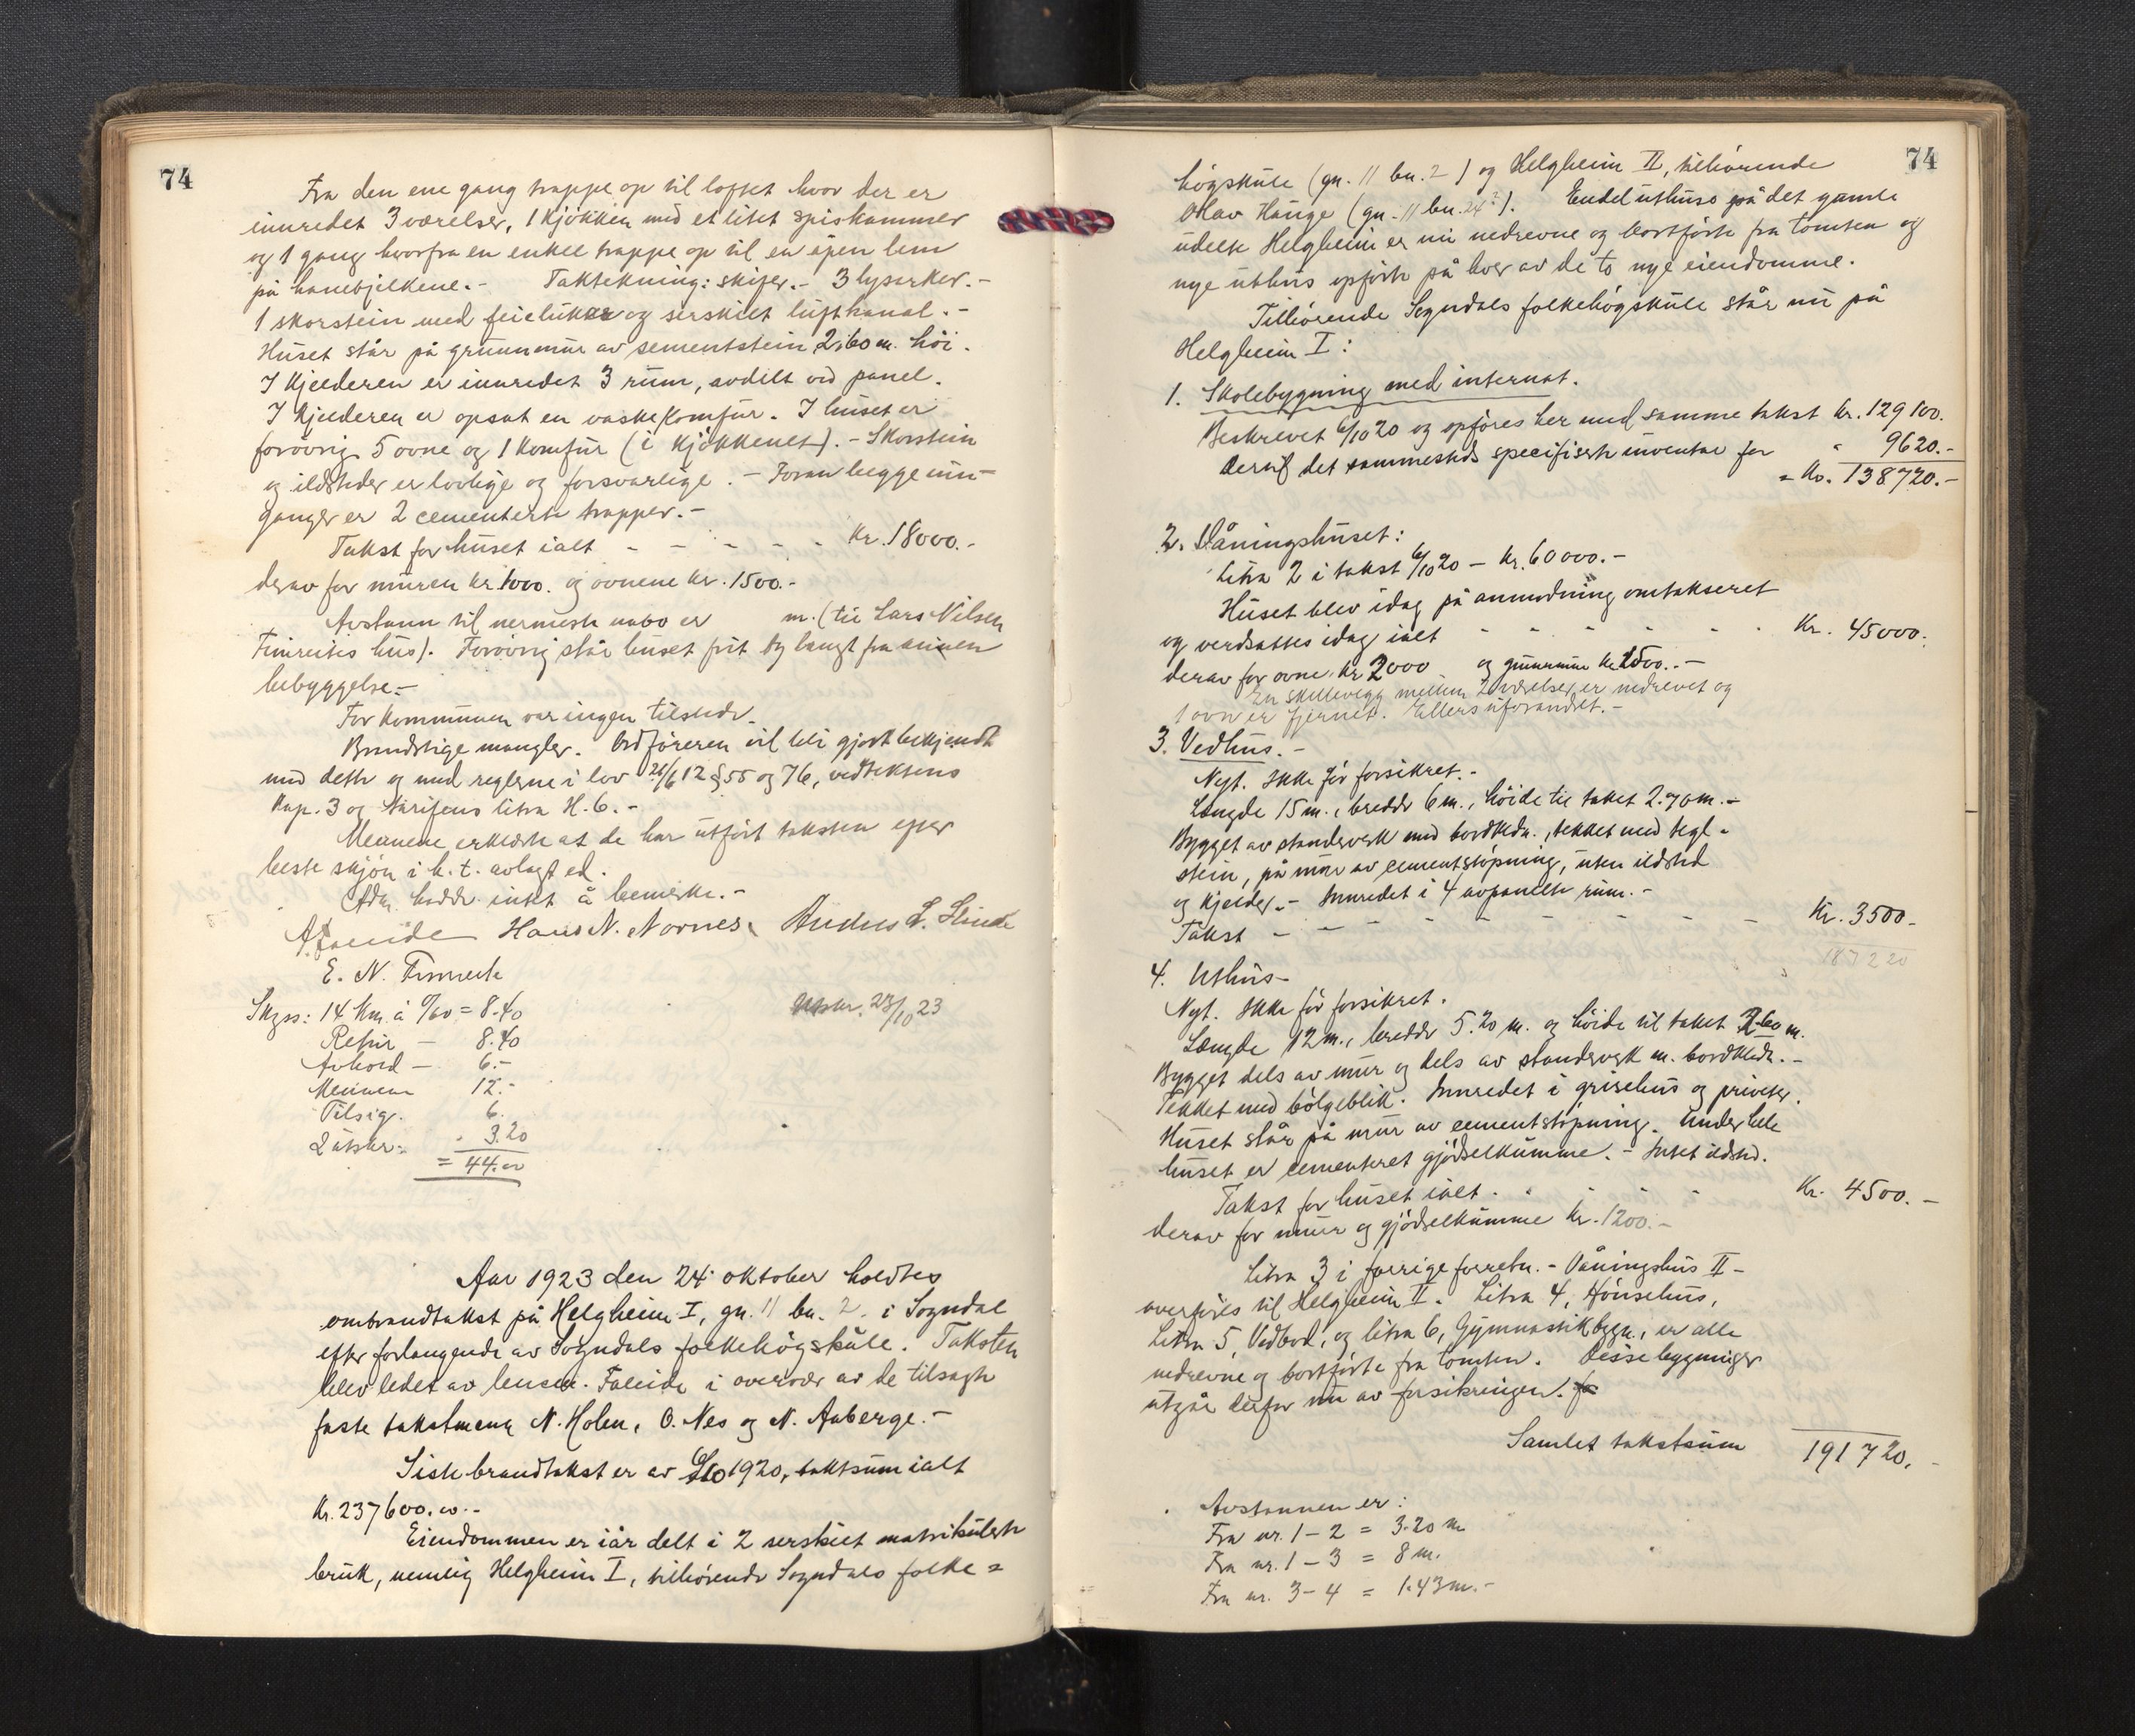 74
Fra den ene gang trappe op til loftet hvor der er
innredet 3 værelser, 1 kjøkken med et litet spiskammer
og 1 gang hvorfra en enkel trappe op til en åpen lem
på hanebjelkene.- Taktekning: skifer.- 3 lysarker.-
1 skorstein med feieluker og serskilt luftkanal.-
Huset står på grunnmur av sementstein 2,60 m. høi.
I kjelderen er innredet 3 rum, avdelt ved panel.
I kjelderen er opsat en vaskekomfur. I huset er
forøvrig 5 ovne og 1 komfur (i kjøkkenet).- Skorstein
og ildsteder er lovlige og forsvarlige.- Foran begge inn-
ganger er 2 cementerte trapper.-
Takst for huset ialt - - - - - Kr. 18000.-
derav for muren kr. 1000. og ovnene kr. 1500.-
Avstann til nermeste nabo er m. (til Lars Nilsen
Fimreites hus). Forøvrig står huset frit og langt fra annen
bebyggelse.-
For kommunen var ingen tilstede.
Brandslige mangler. Ordføreren vil bli gjort bekjendt
med dette og med reglerne i lov 21/6 12 § 55 og 76, vedtektens
Kap. 3 og tarifens litra H. 6.-
Mennene erklærte at de har utført taksten efter
beste skjøn i h. t. avlagt ed.
Adm. hadde intet å bemerke.-
A. Faleide Hans N. Nornes, Anders L. Slinde
E. N. Fimreite
Skyss: 14 km. à 0/60 = 8.40
Retur - 8.40
Avhold - 6.-
Mennene 12.-
Tilsig. 6.
2 utskr. - 3.20
= 44.00
Utskr. 23/10 23
Aar 1923 den 24. oktober holdtes
ombrandtakst på Helgheim I, gn. 11 bn. 2. i Sogndal
efter forlangende av Sogndals folkehøgskule. Taksten
blev ledet av lensm. Faleide i overvær av de tilsagte
faste takstmenn N. Holen, O. Nes og N. Aaberge.-
Siste brandtakst er av 6/10 1920, takstsum ialt
Kr. 237600.00.-
Eiendommen er iår delt i 2 serskilt matrikulerte
bruk, nemlig Helgheim I, tilhørende Sogndals folke=
74
høgskule (gn. 11 bn. 2) og Helgheim II, tilhørende
Olav Hauge (gn. 11 bn. 24?). Endel uthuse på det gamle
udelte Helgheim er nu nedrevne og bortførte fra tomten og
nye uthus opførte på hver av de to nye eiendomme.
Tilhørende Sogndals folkehøgskule står nu på
Helgheim I:
1. Skolebygning med internat.
Beskrevet 6/10 20 og opføres her med samme takst kr. 129100.
dertil det sammesteds specifiserte inventar for " 9620.-
= Kr. 138720.-
2. Våningshuset:
Litra 2 i takst 6/10 20 - kr. 60000.-
Huset blev idag på anmodning omtakseret
og verdsattes idag ialt - - - - - Kr. 45000.
derav for ovne kr. 2000 og grunmur kr. 1500.-
En skillevegg mellem 2 værelser er nedrevet og
1 ovn er fjernet. Ellers uforandret.-
3. Vedhus.-
Nyt. Ikke før forsikret.-
Længde 15 m., bredde 6 m., høide til taket 2.70 m.-
Bygget av standerverk med bordkledn., tekket med tegl-
stein, på mur av cementstøpning, uten ildsted
og kjelder.- Innredet i 4 avpanelte rum.-
Takst - - - - - - - - Kr. 3500-
187220
4. Uthus-
Nyt. Ikke før forsikret.
Længde 12 m., bredde 5.20 m. og høide til taket 2.60 m.
Bygget dels av mur og dels av standerverk m. bordkledn.-
Tekket med bølgeblik. Innredet i grisehus og priveter.
Huset står på mur av cementstøpning. Under hele
huset er cementeret gjødselkumme.- Intet ildsted.
Takst for huset ialt - - - - - Kr. 4500.-
derav for mur og gjødselkumme kr. 1200.-
Litra 3 i forrige forretn.- Våningshus II-
overføres til Helgheim II. Litra 4, Hønsehus,
Litra 5, Vedbod, og litra 6, Gymnastikbygn., er alle
nedrevne og bortførte fra tomten. Disse bygninger
utgår derfor nu av forsikringen.
Samlet takstsum 191720.
Avstannen er:
Fra nr. 1 - 2 = 3.20 m
Fra nr. 1 - 3 = 8 m.
Fra nr. 3 - 4 = 1.43 m.-